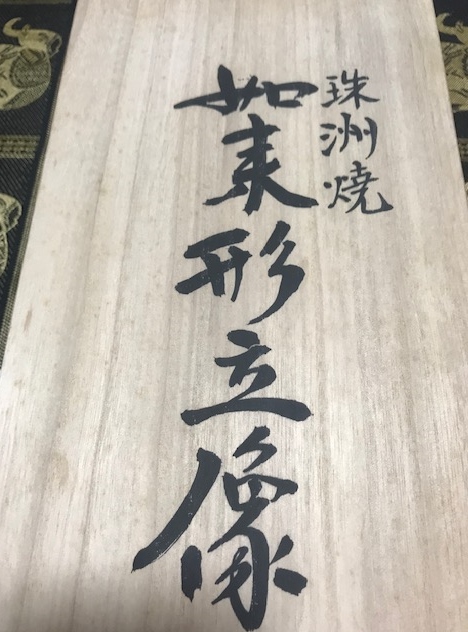 珠洲焼
如来形立像